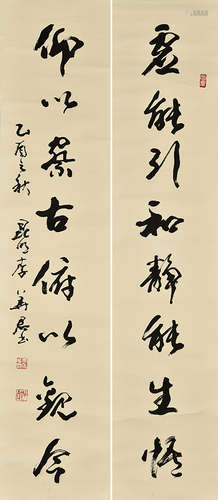 虚能引和静能生悟
仰以察古俯以观今
乙酉之秋